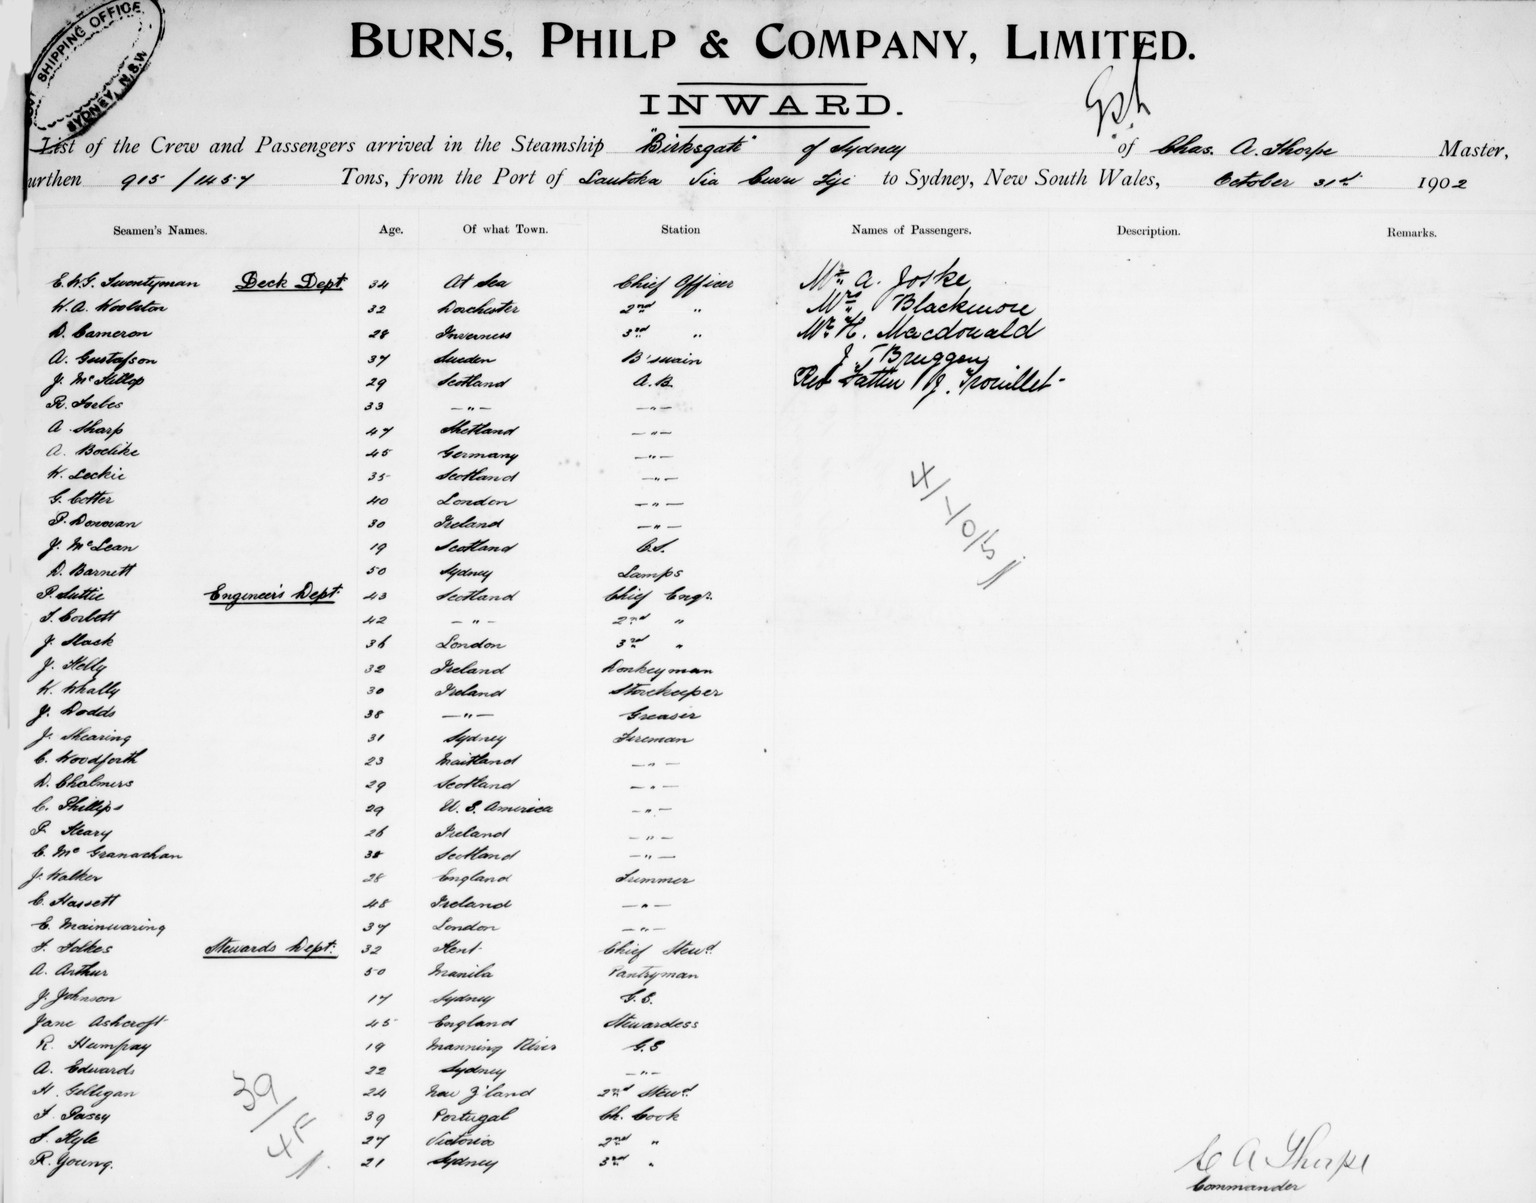 SHIPPING OFFICE
SYDNEY, N.S.W
BURNS, PHILP & COMPANY, LIMITED.
INWARD.
List of the Crew and Passengers arrived in the Steamship "Birksgate" of Sydney of Chas. A. Thorpe Master,
urthen 915/1457 Tons, from the Port of Lautoka Via Suvu Fiji to Sydney, New South Wales, October 31st 1902
Seamen's Names. Age. Of what Town. Station Names of Passengers. Description. Remarks.
E. W. G. Twentyman Deck Dept 34 At Sea Chief Officer Mr. A. Joske
W. A. Woolston 32 Dorchester 2nd " Mrs. Blackmore
D. Cameron 28 Inverness 3rd " Mr. H. Macdonald
A. Gustafson 37 Sweden B'swain J. Bruggen
J. McKillop 29 Scotland A.B. Rev Father J. Trouillet
R. Forbes 33 —"— —"—
A. Sharp 47 Shetland —"—
A. Boelike 45 Germany —"—
W. Leckie 35 Scotland —"—
G. Cotter 40 London —"—
P. Donovan 30 Ireland —"—
J. McLean 19 Scotland O.S.
D. Barnett 50 Sydney Lamps
P. Suttie Engineers Dept 43 Scotland Chief Engr.
T. Corbett 42 —"— 2nd "
J. Slack 36 London 3rd "
J. Kelly 32 Ireland Donkeyman
W. Whally 30 Ireland Storekeeper
J. Dodds 38 —"— Greaser
J. Shearing 31 Sydney Fireman
C. Woodforth 23 Maitland —"—
D. Chalmers 29 Scotland —"—
C. Phillips 29 U.S. America —"—
P. Heary 26 Ireland —"—
C. Mc Granachan 38 Scotland —"—
J. Walker 28 England Trimmer
C. Hassett 48 Ireland —"—
E. Mainwaring 37 London —"—
F. Folkes Stewards Dept. 32 Kent Chief Stewd.
A. Arthur 50 Manila Pantryman
J. Johnson 17 Sydney G.S.
Jane Ashcroft 45 England Stewardess
R. Humpay 19 Manning River G.S
A. Edwards 22 Sydney —"—
H. Gelligan 24 New Z'land 2nd Stewd.
F. Passy 39 Portugal Ch. Cook
S. Kyle 27 Victoria 2nd "
R. Young. 21 Sydney 3rd "
39/4F
C A Thorpe
Commander